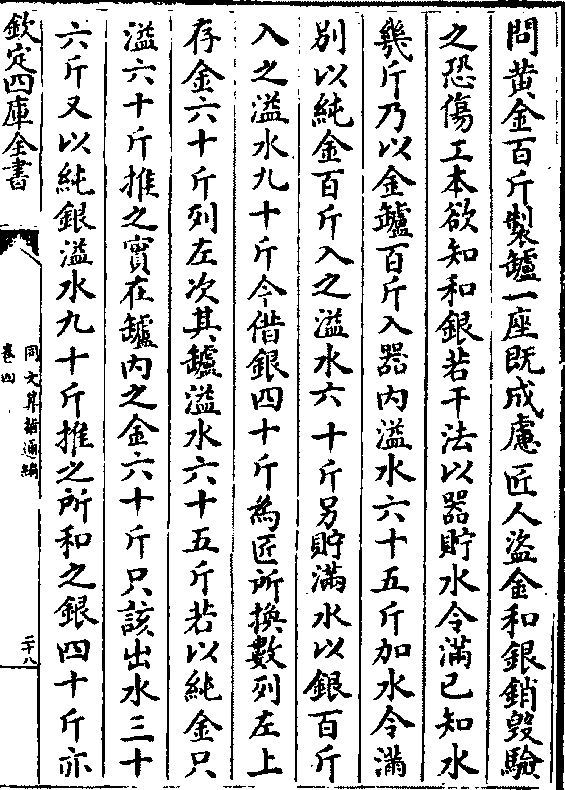 問黄金百斤製罏一座既成慮匠人盜金和銀銷毀驗
之恐傷工本欲知和銀若干法以器貯水令滿已知水
幾斤乃以金罏百斤入器内溢水六十五斤加水令滿
別以純金百斤入之溢水六十斤另貯滿水以銀百斤
入之溢水九十斤今借銀四十斤為匠所換數列左上
存金六十斤列左次其罏溢水六十五斤若以純金只
溢六十斤推之實在罏内之金六十斤只該出水三十
六斤又以純銀溢水九十斤推之所和之銀四十斤亦
欽定四庫全書
同文算指通編
卷四
二十八